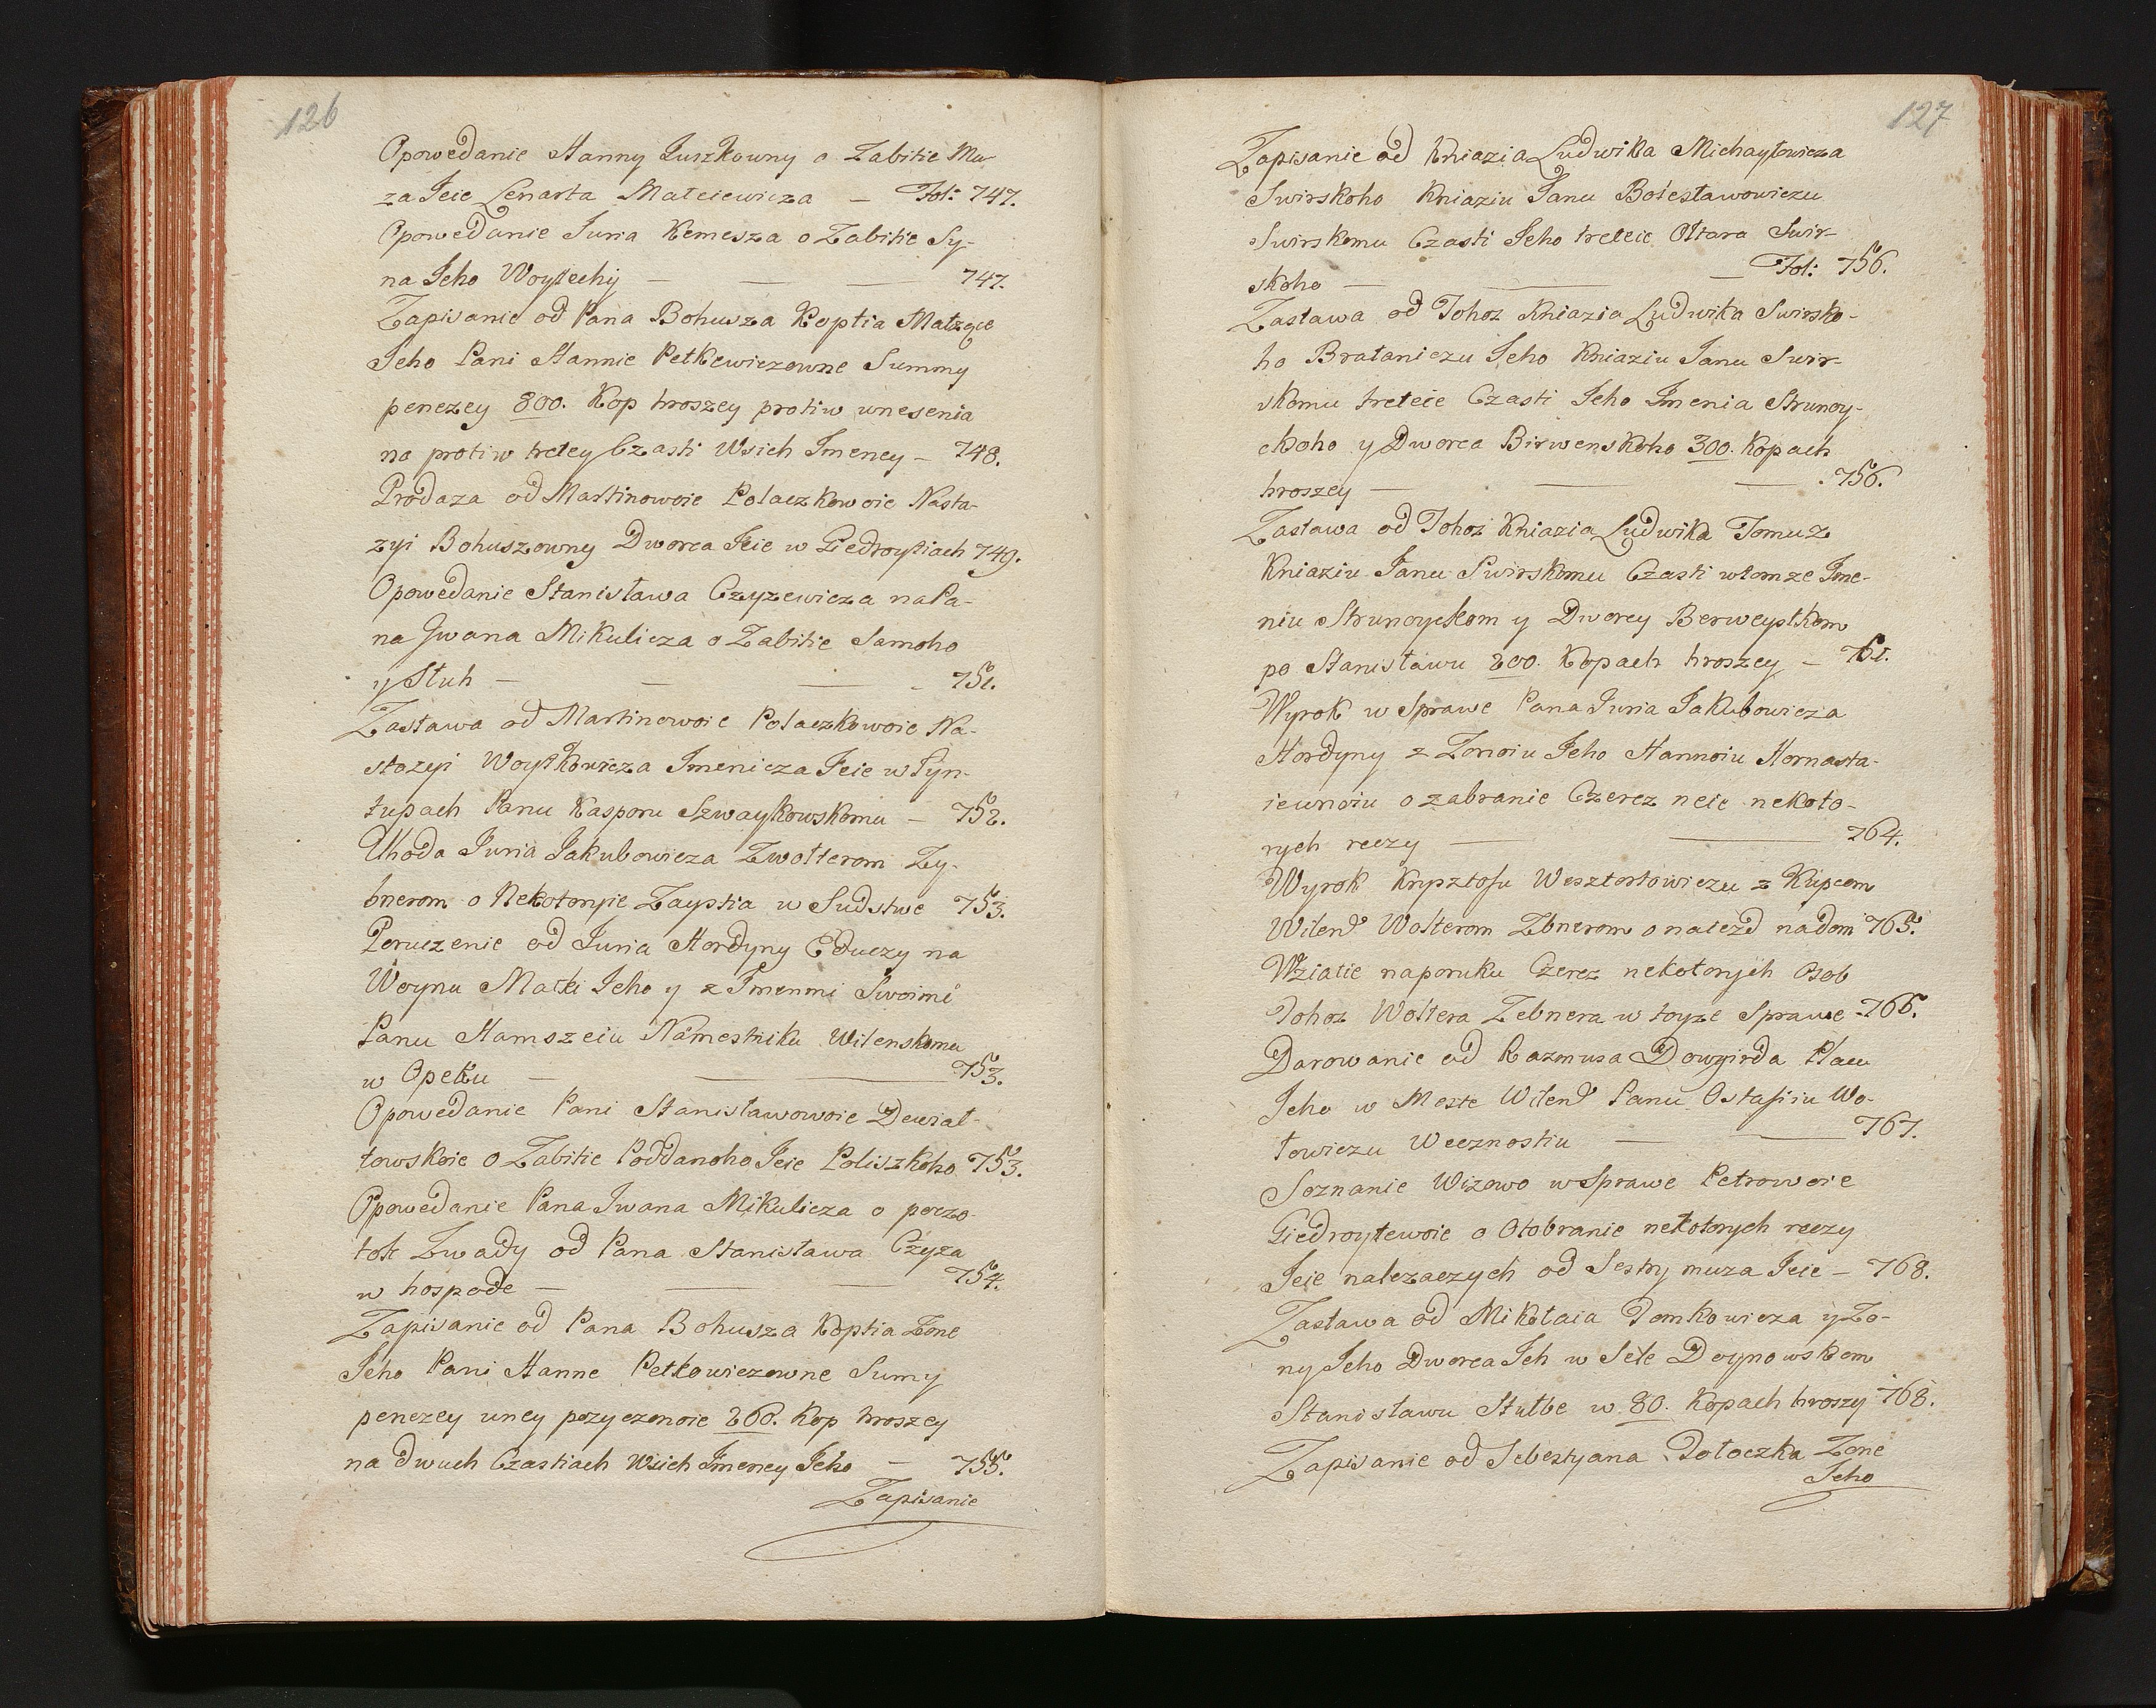 126
Opowedanie Hanny Juszkowny o Zabitie Mu-
za Jeie Lenarta Mateiewicza – Fol: 747.
Opowedanie Juria Kemesza o Zabitie Sy-
na Jeho Woytechy — — — 747.
Zapisanie od Pana Bohusza Koptia Małzące
Jeho Pani Hannie Petkewiczowne Summy
penezey 800. Kop hroszey protiw wnesenia
na protiw tretey Czasti Wsich Jmeney – 748.
Prodaza od Martinowoie Polaczkowoie Nasta-
zyi Bohuszowny Dworca Jeie w Giedroytiach 749.
Opowedanie Stanisława Czyzewicza na Pa-
na Jwana Mikulicza o Zabitie Samoho
y Sług — — — 751.
Zastawa od Martinowoie Polaczkowoie Na-
stazyi Woytkowicza Jmenicza Jeie w Syn-
tupach Panu Kasporu Szwaykowskomu – 752.
Uhoda Juria Jakubowicza Zwolterom Zy-
bnerom o Nekotoryie Zaystia w Sudstwe 753.
Poruczenie od Juria Hordyny Educzy na
Woynu Matki Jeho y z Jmenmi Swoimi
Panu Hamszeiu Namestniku Wilenskomu
w Opeku — — 753.
Opowedanie Pani Stanisławowoie Dewiał-
towskoie o Zabitie Poddanoho Jeie Poliszkoho 753.
Opowedanie Pana Jwana Mikulicza o poczo-
tok Zwady od Pana Stanisława Czyza
w hospode — — 754.
Zapisanie od Pana Bohusza Koptia Zone
Jeho Pani Hanne Petkowiczowne Sumy
penezey uney pozyczonoie 260. Kop hroszey
na dwuch Czastiach Wsich Jmeney Jeho – 755.
Zapisanie
127
Zapisanie od Kniazia Ludwika Michayłowicza
Swirskoho Kniaziu Janu Bolesławowiczu
Swirskomu Czasti Jeho treteie Ołtara Swir-
skoho — — – Fol: 756.
Zastawa od Tohoz Kniazia Ludwika Swirsko-
ho Brataniczu Jeho Kniaziu Janu Swir-
skomu treteie Czasti Jeho Jmenia Strunoy-
ckoho y Dworca Birwenskoho 300. Kopach
hroszey — — — 756.
Zastawa od Tohoz Kniazia Ludwika Tomuz
Kniaziu Janu Swirskomu Czasti wtomze Jme-
niu Strunoyckom y Dworcy Berweystkom
po Stanisławu 200. Kopach hroszey –
Wyrok w Sprawe Pana Juria Jakubowicza
Hordyny z Zonoiu Jeho Hannoiu Hornosta-
iewnoiu o zabranie Czerez neie nekoto-
rych reczy — — 764.
Wyrok Krysztofu Wesztortowiczu z Kupcom
Wilend Wolterom Zbnerom o naiezd na dom 765.
Wziatie naporuku Czerez nekotorych Osob
Tohoz Woltera Zebnera w toyze Sprawe 766.
Darowanie od Razmusa Dowgirda Placu
Jeho w Meste Wilend Panu Ostafiiu Wo-
łowiczu Wecznostiu — — 767.
Soznanie Wizowo w Sprawe Petrowoie
Giedroytewoie o Otobranie nekotorych reczy
Jeie nalezaczych od Sestry muza Jeie – 768.
Zastawa od Mikołaia Tomkowicza y Zo-
ny Jeho Dworca Jch w Sele Doynowskom
Stanisławu Stutbe w 80. Kopach hroszy 768.
Zapisanie od Sebestyana Tołoczka Zone
Jeho